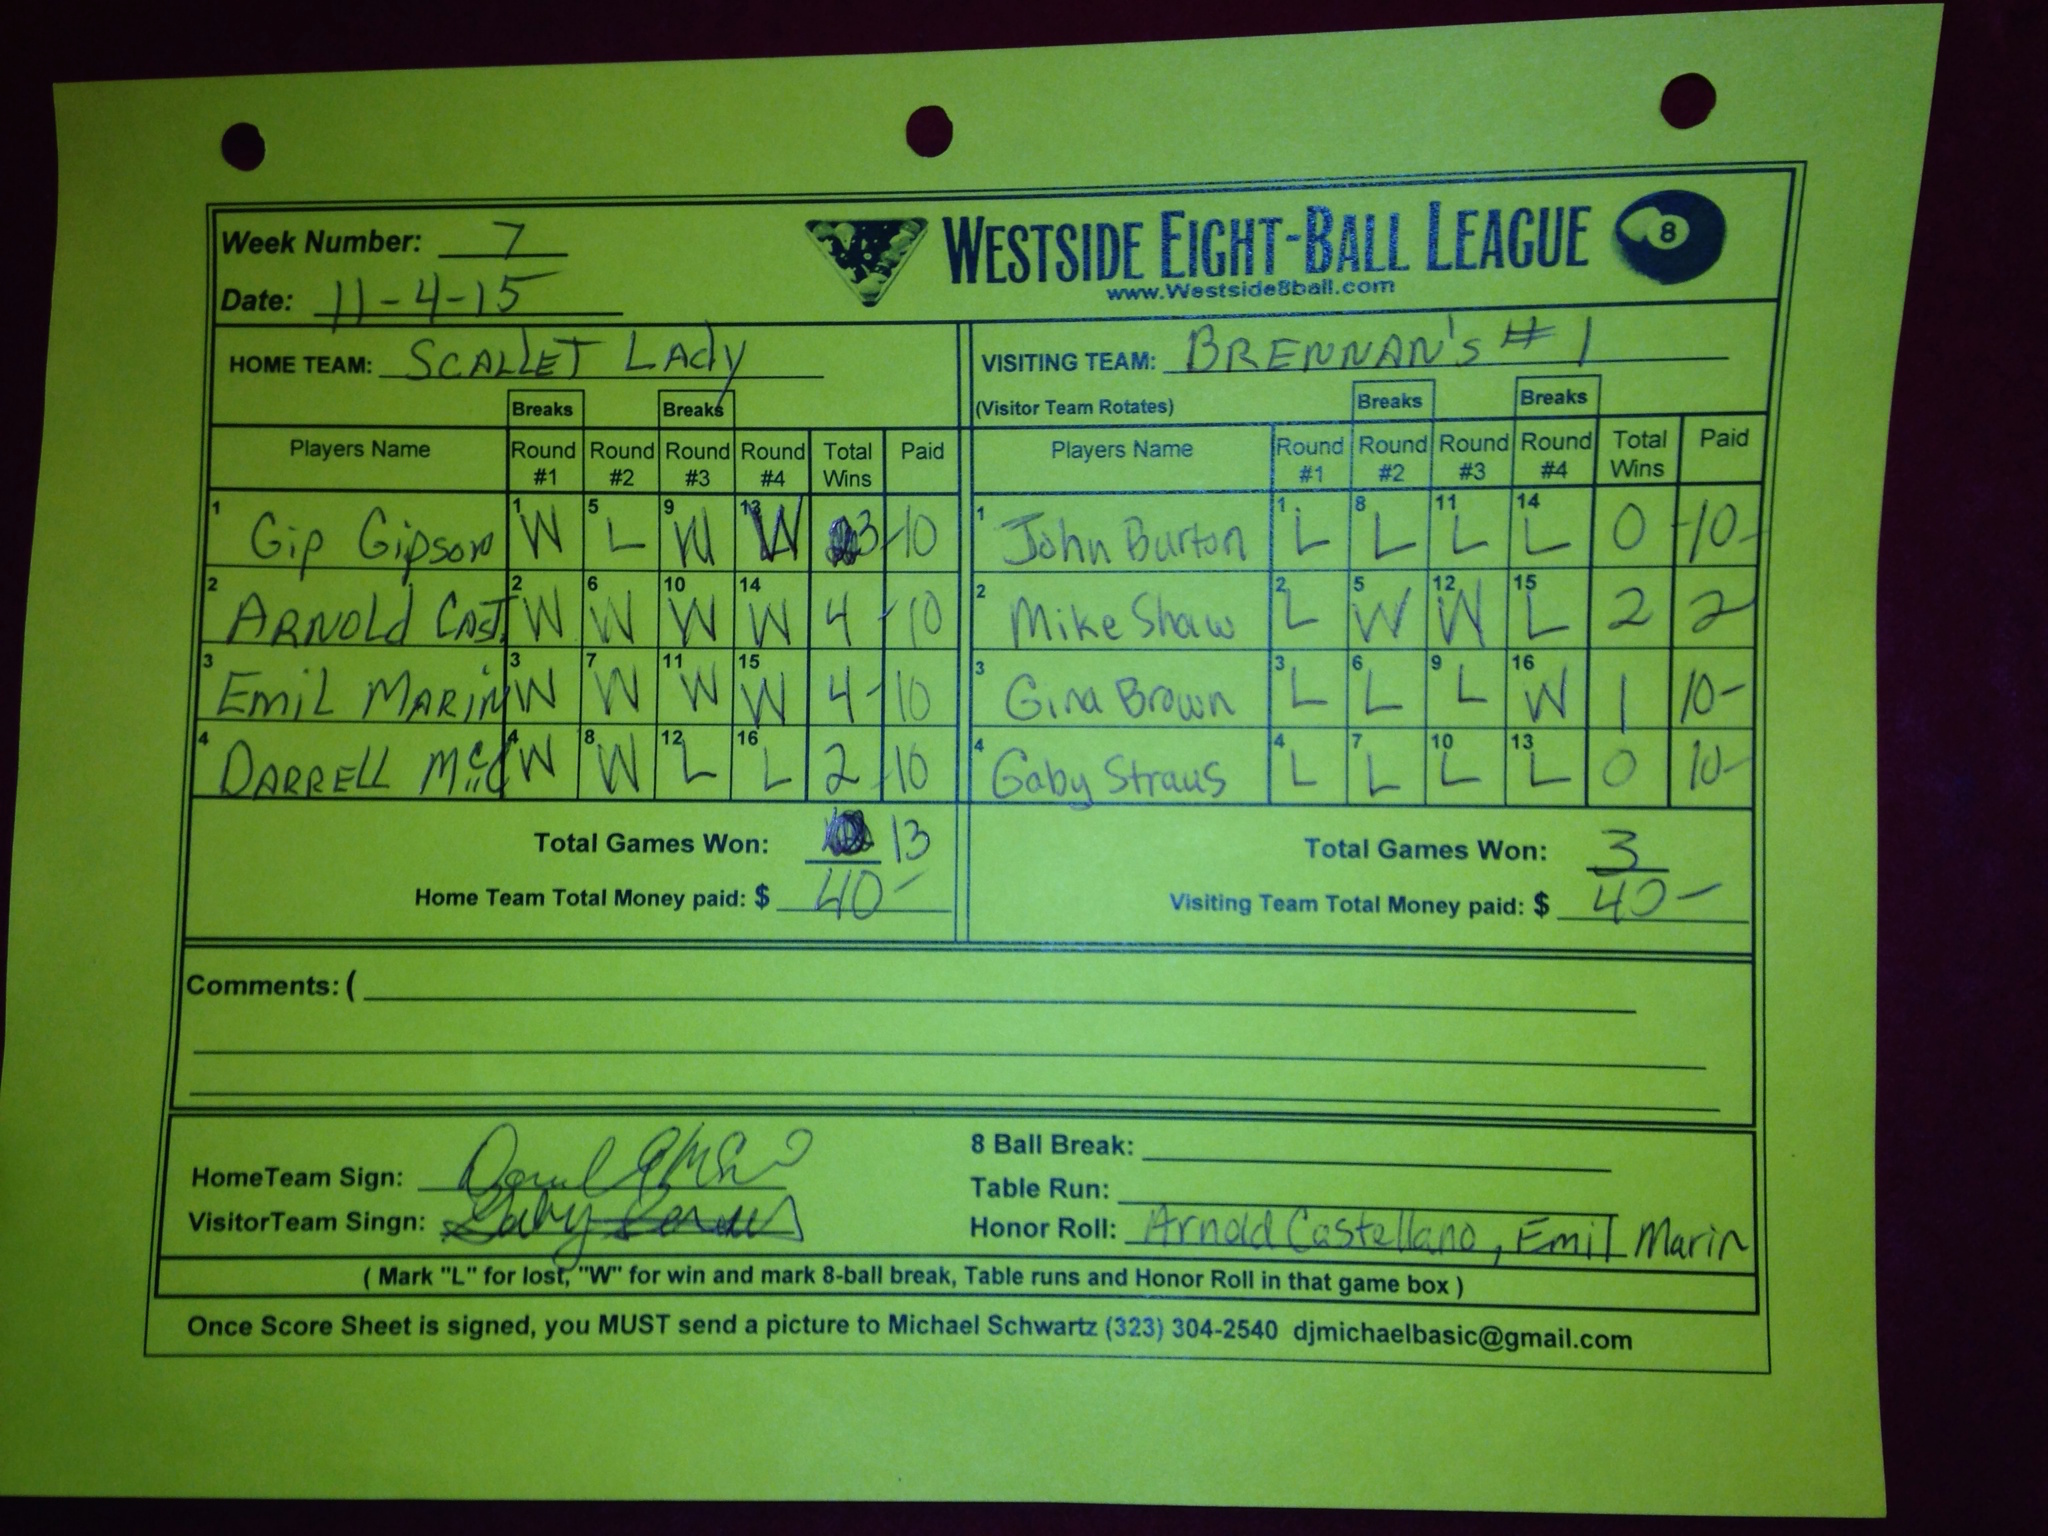 Week Number: 7
WESTSIDE EIGHT-BALL LEAGUE 8
Date: 11-4-15
www.Westside8ball.com
HOME TEAM: SCALLET LAdy
VISITING TEAM: BRENNAN'S #1
Breaks Breaks
(Visitor Team Rotates) Breaks Breaks
Players Name Round #1 Round #2 Round #3 Round #4 Total Wins Paid
Players Name Round #1 Round #2 Round #3 Round #4 Total Wins Paid
1 Gip Gipson 1 W 5 L 9 W 13 W 3 -10
1 John Burton 1 L 8 L 11 L 14 L 0 -10-
2 ARNOLd CAST. 2 W 6 W 10 W 14 W 4 -10
2 Mike Shaw 2 L 5 W 12 W 15 L 2 2
3 EmiL MARIN 3 W 7 W 11 W 15 W 4 -10
3 Gina Brown 3 L 6 L 9 L 16 W 1 10-
4 DARRELL 4 W 8 W 12 L 16 L 2 -10
4 Gaby Straus 4 L 7 L 10 L 13 L 0 10-
Total Games Won: 13
Total Games Won: 3
Home Team Total Money paid: $ 40-
Visiting Team Total Money paid: $ 40-
Comments: (
8 Ball Break:
HomeTeam Sign:
Table Run:
VisitorTeam Singn: Gaby
Honor Roll: Arnold Castellano, Emil Marin
( Mark "L" for lost, "W" for win and mark 8-ball break, Table runs and Honor Roll in that game box )
Once Score Sheet is signed, you MUST send a picture to Michael Schwartz (323) 304-2540 djmichaelbasic@gmail.com